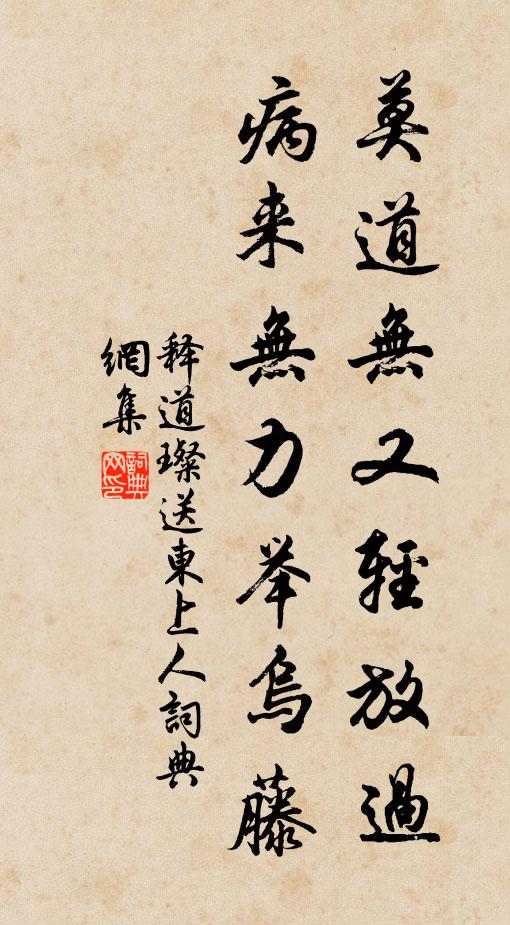 莫道無又輕放過
病来無力举烏藤
释道璨送東上人詞典
網集
詞典
网印